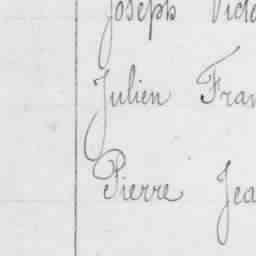 Joseph Vide
Julien Fran
Pierre Jea